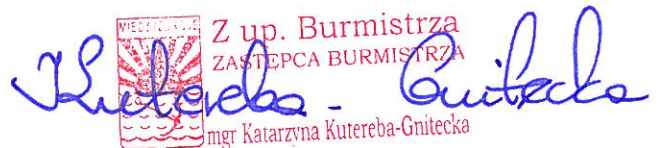 Z up. Burmistrza
ZASTĘPCA BURMISTRZA
Kutereba - Gnitecka
mgr Katarzyna Kutereba-Gnitecka